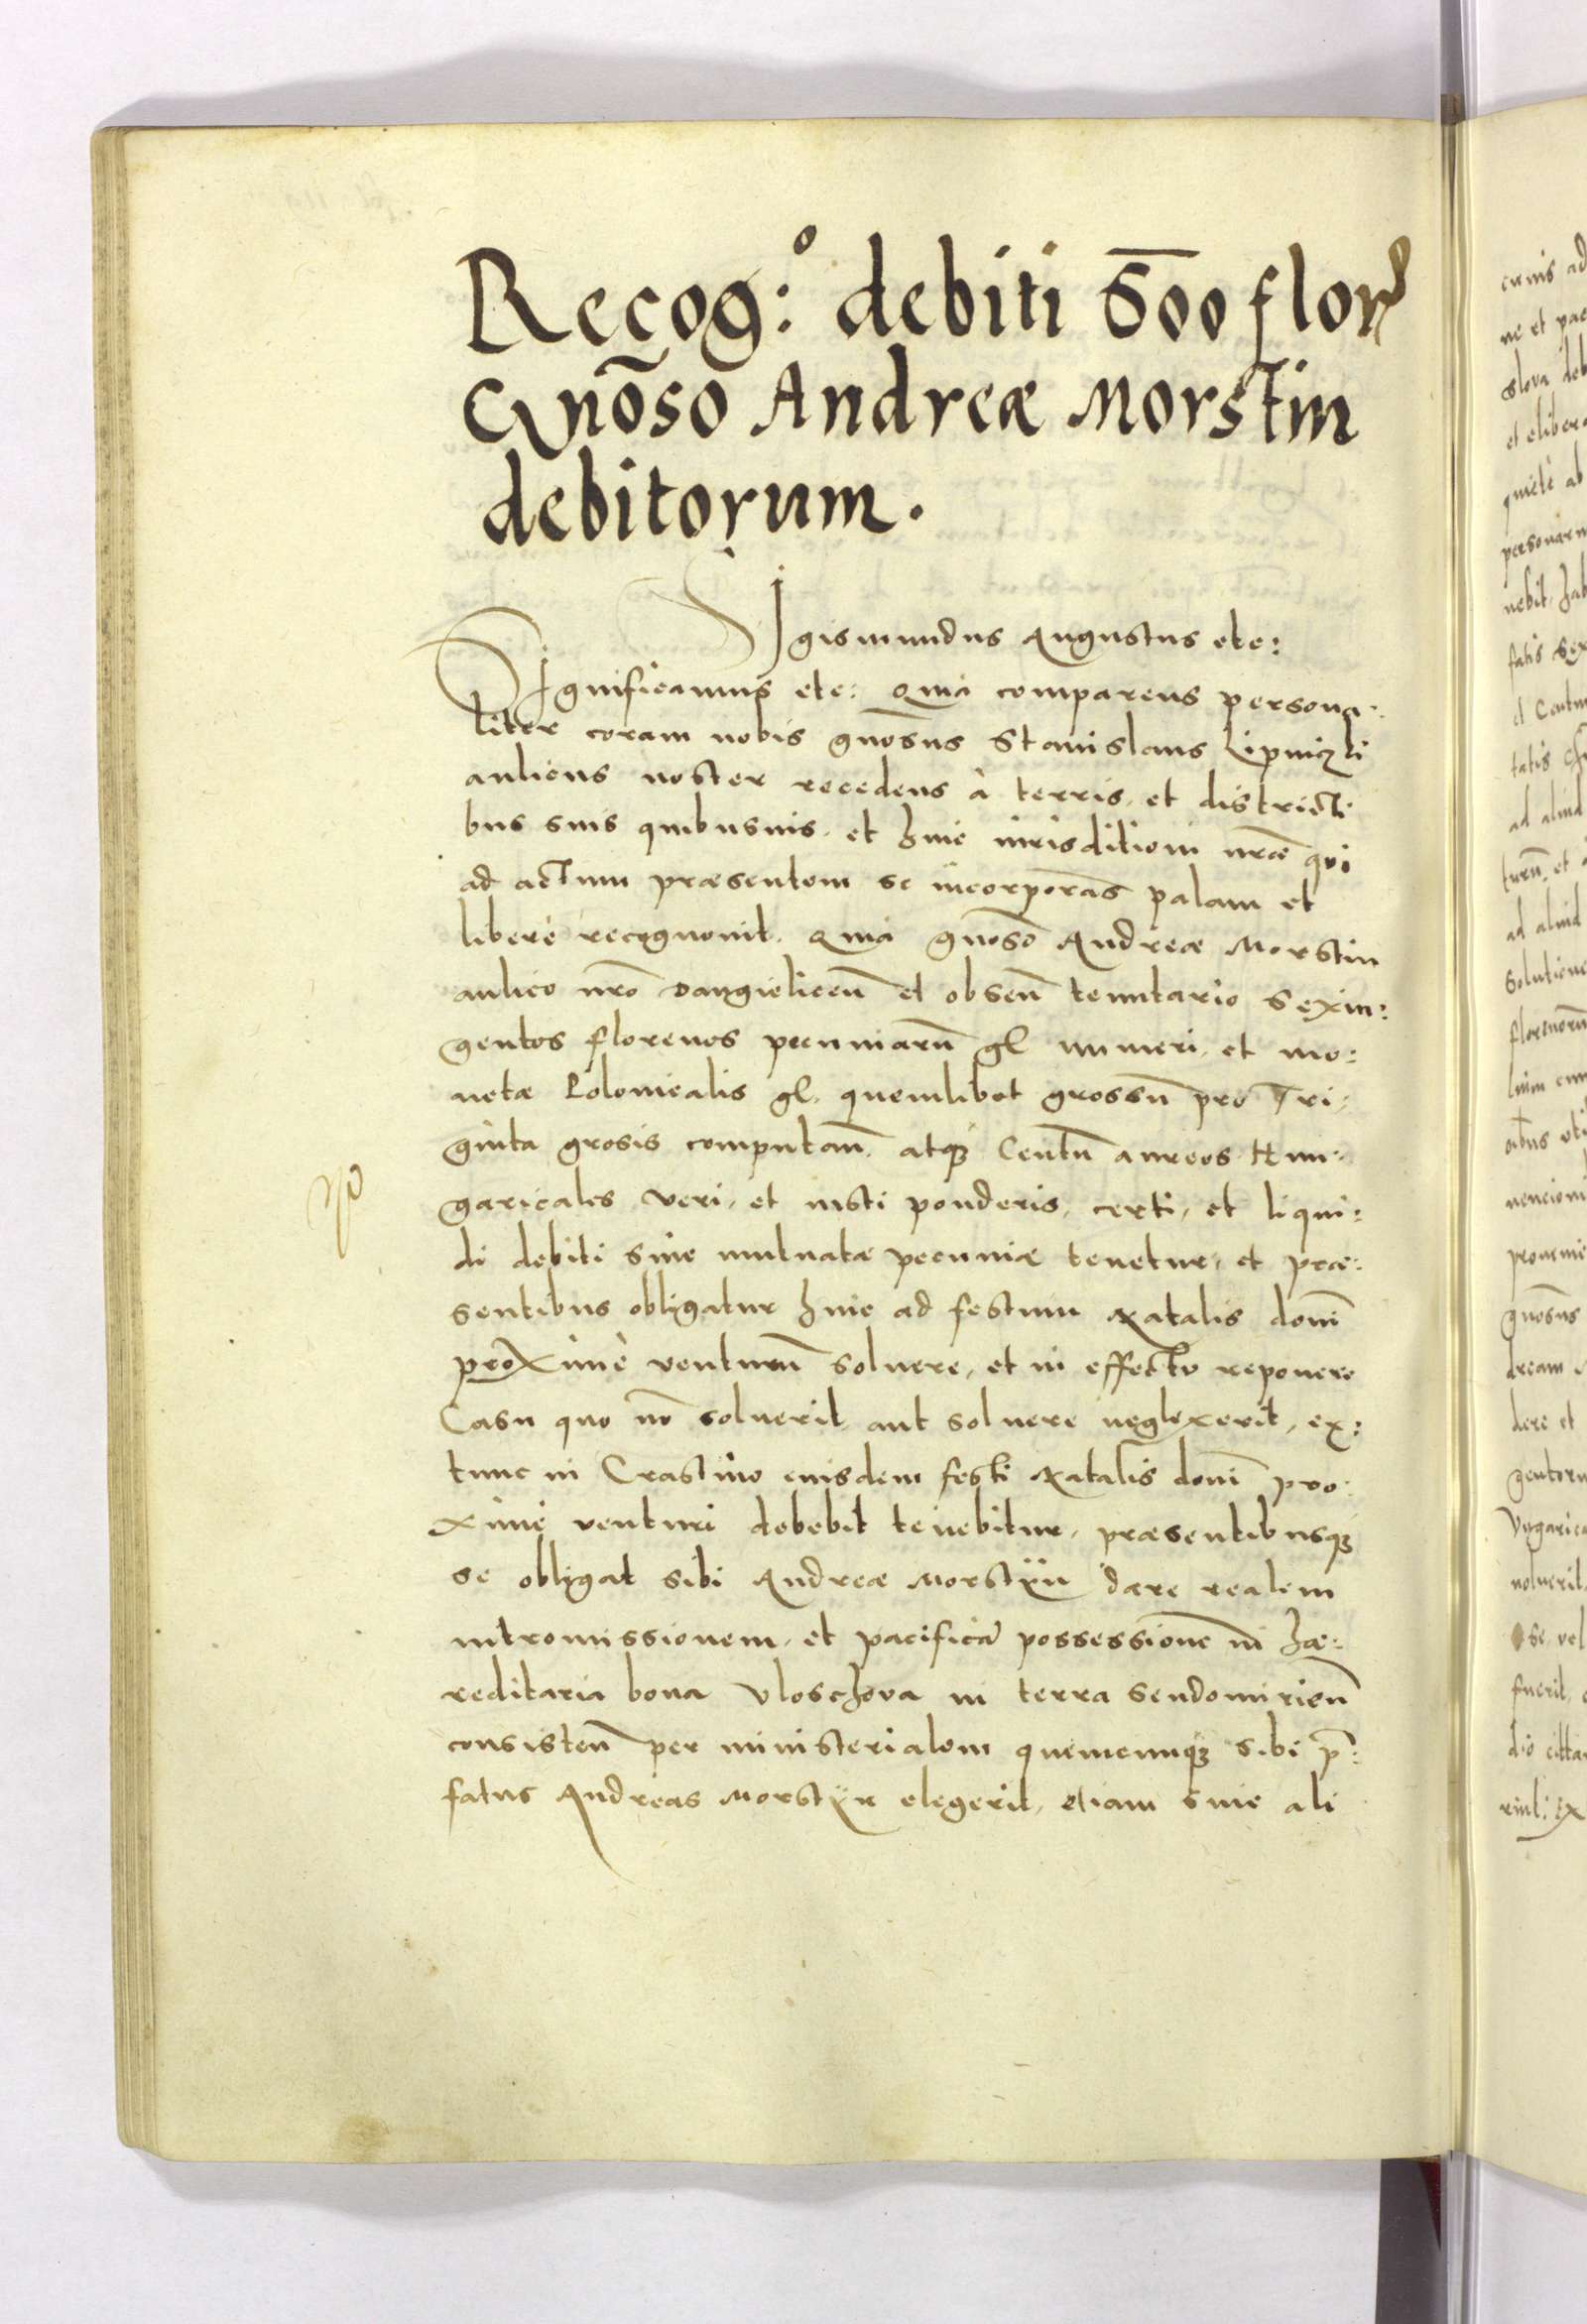 Recog:º debiti 600 flor
Gnõso Andreæ Morstin
debitorum.
Sigismundus Augustus etc:
Significamus etc: Quia comparens persona:
liter coram nobis gnõsus Stanislaus Lipniczki
aulicus noster recedens à terris, et districti
bus suis quibusuis, et huic iurisditioni nræ qvi
ad actum præsentem se incorporãs palam et
liberè recognouit. Quia gnõso Andreæ Morstin
aulico nrõ Vangielicen̄ et obsen̄ tenutario sexin:
gentos florenos pecuniarũ gl numeri, et mo:
netæ Polonicalis gl. quemlibet grossũ pro Tri:
ginta grosis computan̄. atq3 Centũ aureos Hun:
garicales veri, et iusti ponderis, certi, et liqui:
di debiti siue mutuatæ pecuniæ tenetur, et præ:
sentibus obligatur huic ad festum Natalis domī
proximè venturũ soluere, et in effectu reponere
Casu quo nõ soluerit, aut soluere neglexerit, ex:
tunc in Crastino eiusdem festi Natalis domī pro:
ximè venturi debebit tenebitur, præsentibusq3
se obligat sibi Andreæ Morstÿn dare realem
intromissionem, et pacificã possessionẽ in hæ:
reditaria bona Vloschova in terra Sendomirien̄
consisten̄ per ministerialem quemcunq3 sibi p̄:
fatus Andreas Morstÿn elegerit, etiam siue ali